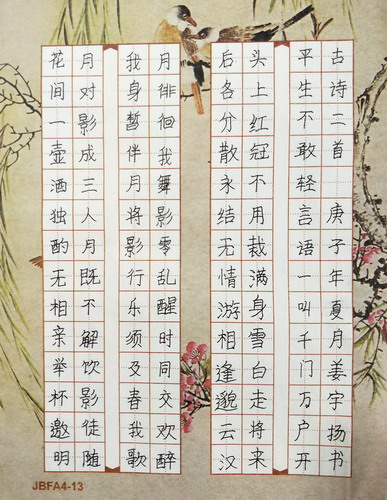 花间一壶酒独酌无相亲举杯邀明
月对影成三人月既不解饮影徒随
我身暂伴月将影行乐须及春我歌
月徘徊我舞影零乱醒时同交欢醉
后各分散永结无情游相逢邈云汉
头上红冠不用裁满身雪白走将来
平生不敢轻言语一叫千门万户开
古诗二首 庚子年夏月姜宇扬书
JBFA4-13